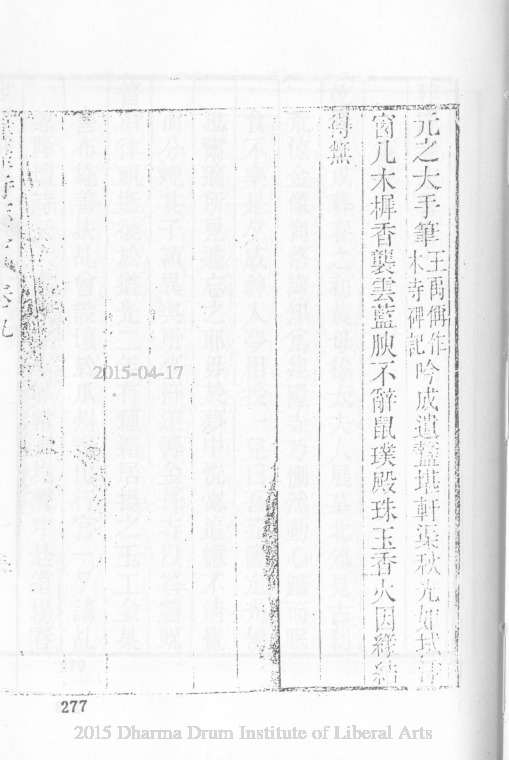 元之大手筆王禹偁作木寺碑記吟成遺藁堪軒渠秋光如拭
窗几木樨香襲雲藍腴不辭鼠璞殿珠玉香火因緣結
得無
2015-04-17
277
2015 Dharma Drum Institute of Liberal Arts